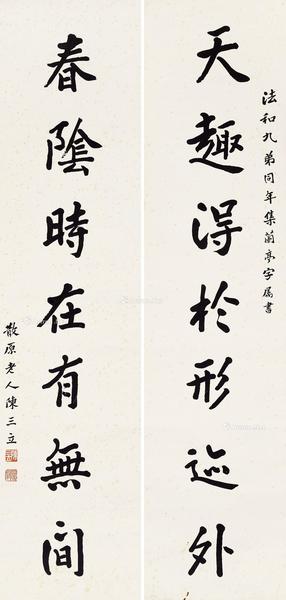 天趣得於形迹外
法和九弟同年集蘭亭字屬書
春陰時在有無間
散原老人陳三立